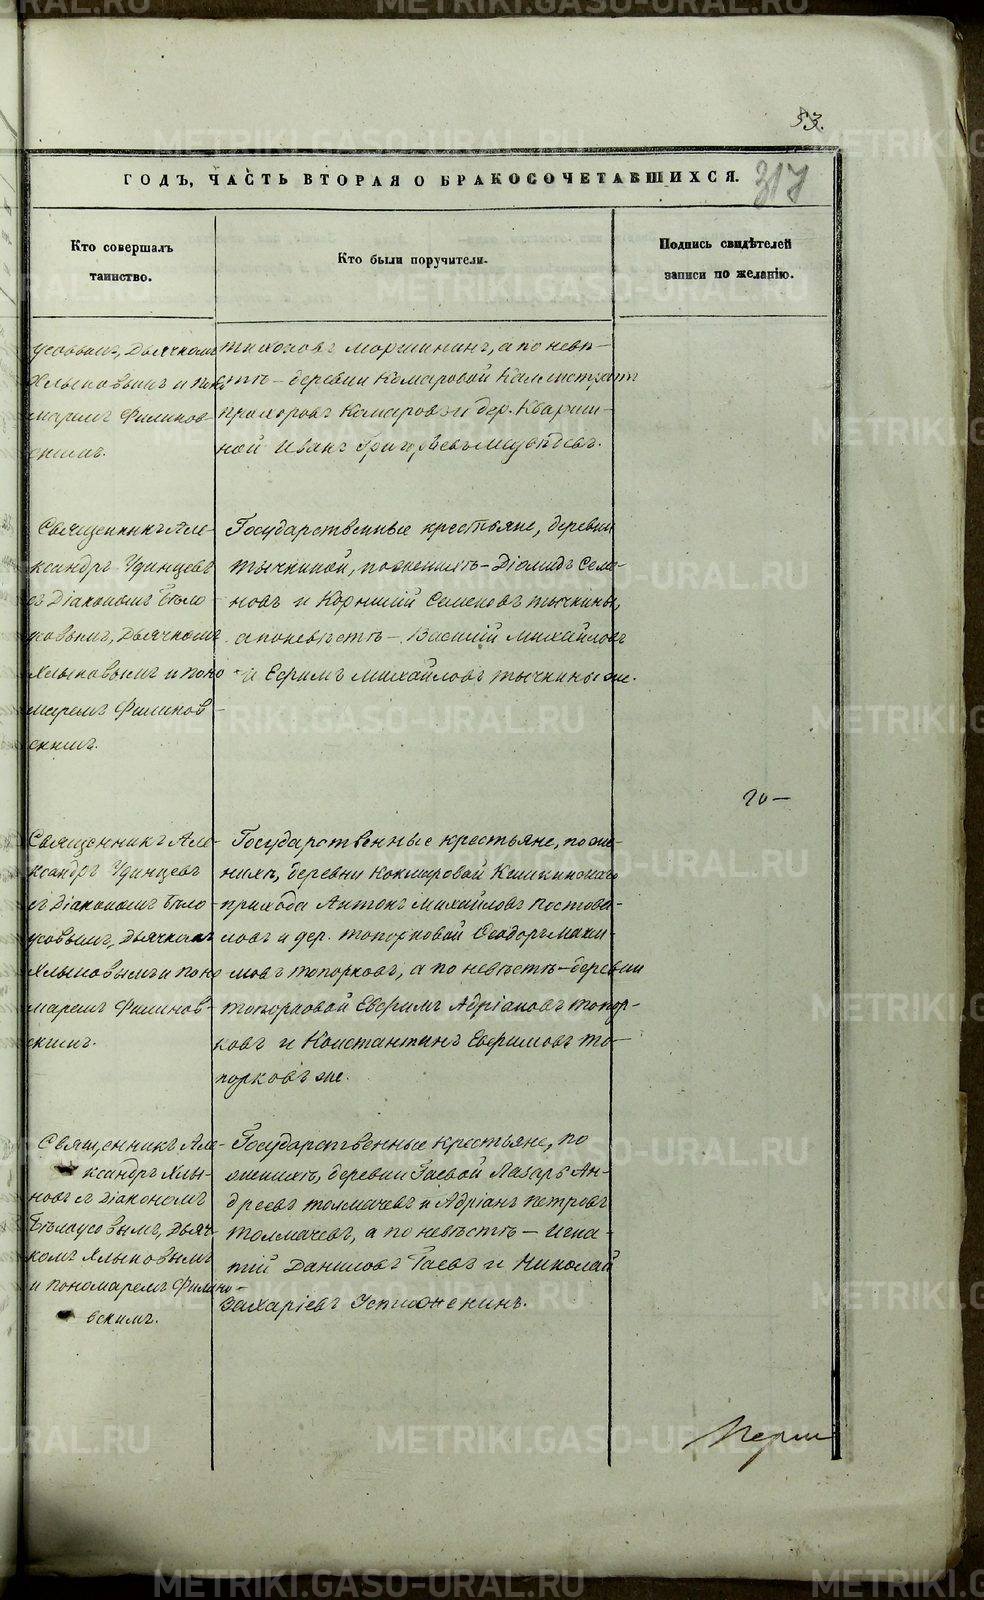 53.
ГОДЪ, ЧАСТЬ ВТОРАЯ О БРАКОСОЧЕТАВШИХСЯ.
317
Кто совершалъ
таинство.
Кто были поручители.
Подпись свидѣтелей
записи по желанію.
усовымъ, Дьячкомъ
Хлыновымъ и поно
маремъ Филинов-
скимъ.
Тихоновъ Моршининъ, а по невѣ-
стѣ – деревни Комаровой Каллистратъ
Прохоровъ Комаровъ и дер. Кварши-
ной Иванъ Григорьевъ
Священникъ Але-
ксандръ Удинцевъ
съ Діакономъ Бѣло
усовымъ, Дьячкомъ
Хлыновымъ и поно
маремъ Филинов-
скимъ.
Государственные крестьяне, деревни
Тычкиной, по женихѣ – Діомидъ Семе-
новъ и Корнилій Семеновъ Тычкины,
а по невѣстѣ – Василій Михайловъ
и Ефримъ Михайловъ Тычкины же.
20 –
Священникъ Але-
ксандръ Удинцевъ
съ Діакономъ Бѣло-
усовымъ, Дьячкомъ
Хлыновымъ и поно
маремъ Филинов-
скимъ.
Государственные крестьяне, по же-
нихѣ, деревни Кокшаровой
прихода Антонъ Михайловъ Постова-
ловъ и дер. Топорковой Ѳеодоръ Маки-
мовъ Топорковъ, а по невѣстѣ – деревни
Топорковой Ефримъ Адріановъ Топор-
ковъ и Константинъ Ефримовъ То-
порковъ же.
Священникъ Але-
ксандръ Хлы-
новъ съ Діакономъ
Бѣлоусовымъ, Дьяч-
комъ Хлыновымъ
и пономаремъ Филино-
вскимъ.
Государственные крестьяне, по
женихѣ, деревни Гаевой Лазарь Ан-
дреевъ Толмачевъ и Адріанъ Петровъ
Толмачевъ, а по невѣстѣ – Игна-
тій Даниловъ Гаевъ и Николай
Захаріевъ Устюженинъ.
METRIKI.GASO-URAL.RU